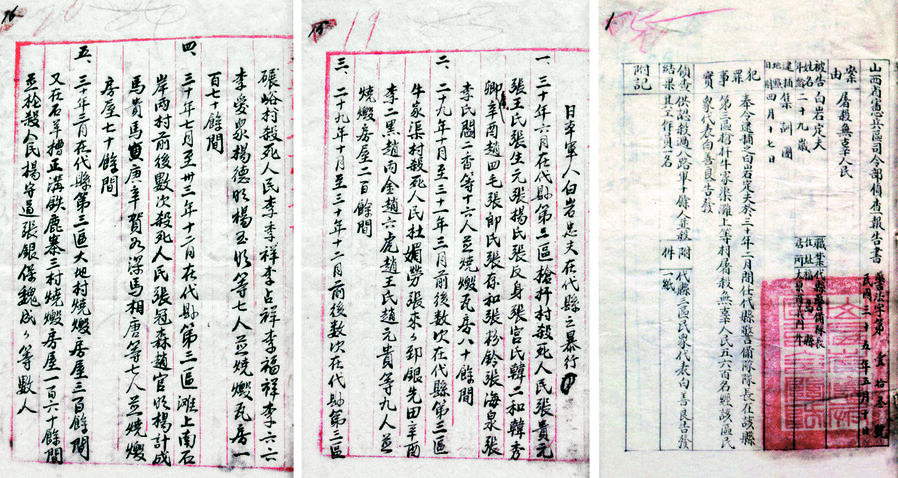 山西省憲兵區司令部偵查報告書
民國三十五年五月十
案由
屠殺無辜人民
被告姓名 白岩定夫
年齡 二十九歲
逮捕地點 集訓團
日期 四月十七日
職業 代縣警備隊長
犯罪事實
奉令逮捕之白岩定夫於三十年二月間任代縣警備隊隊長在該縣
第三區槍扞牛家渠灘上等村屠殺無辜人民五六百名經該區民
眾代表白善良告發
偵查結果
附件
代縣三區民眾代表白善良告發
一紙
附記
日本軍人白岩忠夫在代縣之暴行
一 三十年六月在代縣第三區槍扞村殺死人民張貴元
張王氏張生元張楊氏張反身張宮氏韓二和韓秀
卿辛酉趙四毛張郎氏張存和張粉鈴張海泉張
李氏閻二香等十六人並燒燬瓦房八十餘間
二、二十九年十月至三十年三月前後數次在代縣第三區
牛家渠村殺死人民杜媚勞張來々卯銀先田辛酉
李二黑趙丙全趙六虎趙王氏趙元貴等九人並
燒燬房屋二百餘間
三、二十九年十月至三十年十二月前後數次在代縣第三區
碾峪村殺死人民李李祥李占祥李福祥李六六
李愛泉楊德明楊玉明等七人並燒燬瓦房一
百七十餘間
四、三十年七月至卅三年十二月在代縣第三區灘上南石
岸兩村前後數次殺死人民張冠森趙官明楊計成
馬貴馬寅庚辛賀為深馬相唐等七人並燒燬
房屋七十餘間
五、三十年三月在代縣第三區大地村燒燬房屋三百餘間
又在石羊擔正溝鉄鹿泰三村燒燬房屋一百六十餘間
並槍殺人民楊守道張銀保魏成々等數人